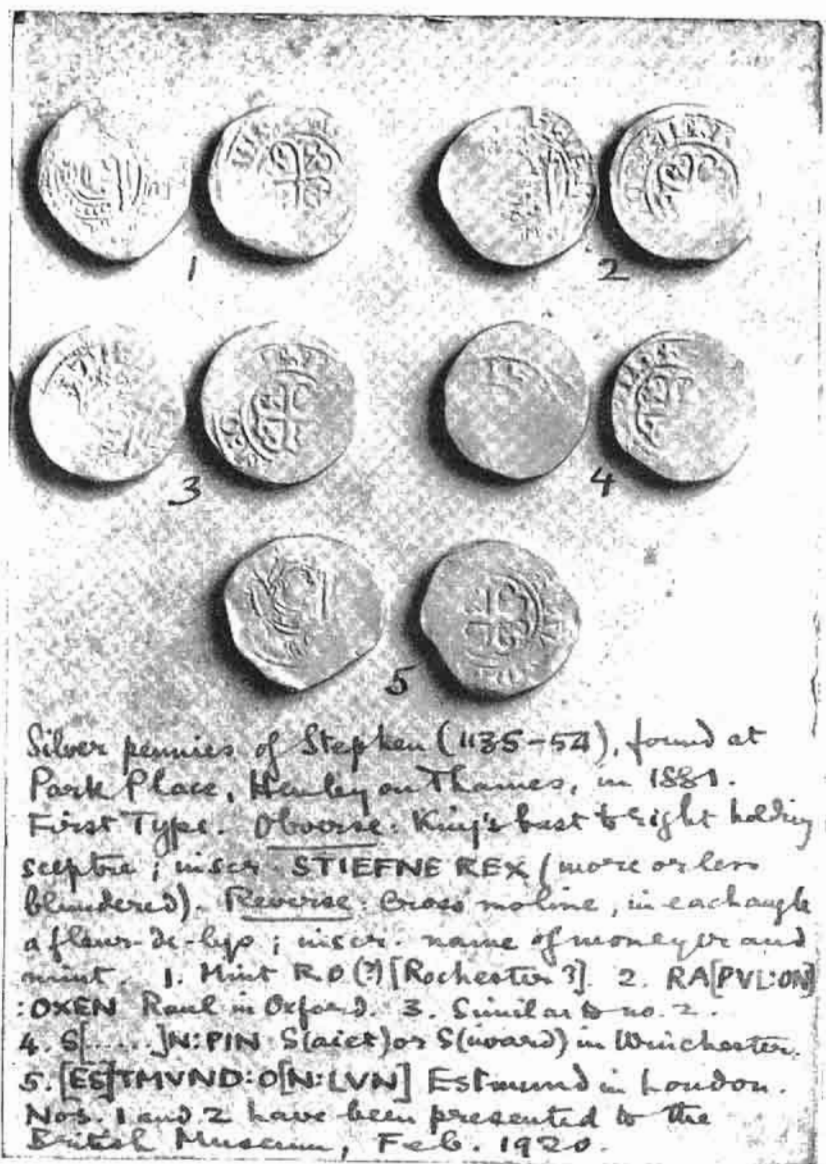 1
2
3
4
5
Silver pennies of Stephen (1135-54), found at
Park Place, Henley on Thames, in 1881.
First Type. Obverse: King's bust to right holding
sceptre; inscr. STIEFNE REX (more or less
blundered). Reverse: Cross moline, in each angle
a fleur-de-lys; inscr. name of moneyer and
mint. 1. Mint R.O(?) [Rochester?]. 2. RA[PVL:ON]
:OXEN Raul in Oxford. 3. Similar to no. 2.
4. S[.....]N:PIN S(aiet) or S(iward) in Winchester.
5. [ES]TMVND:O[N:LVN] Estmund in London.
Nos. 1 and 2 have been presented to the
British Museum, Feb. 1920.